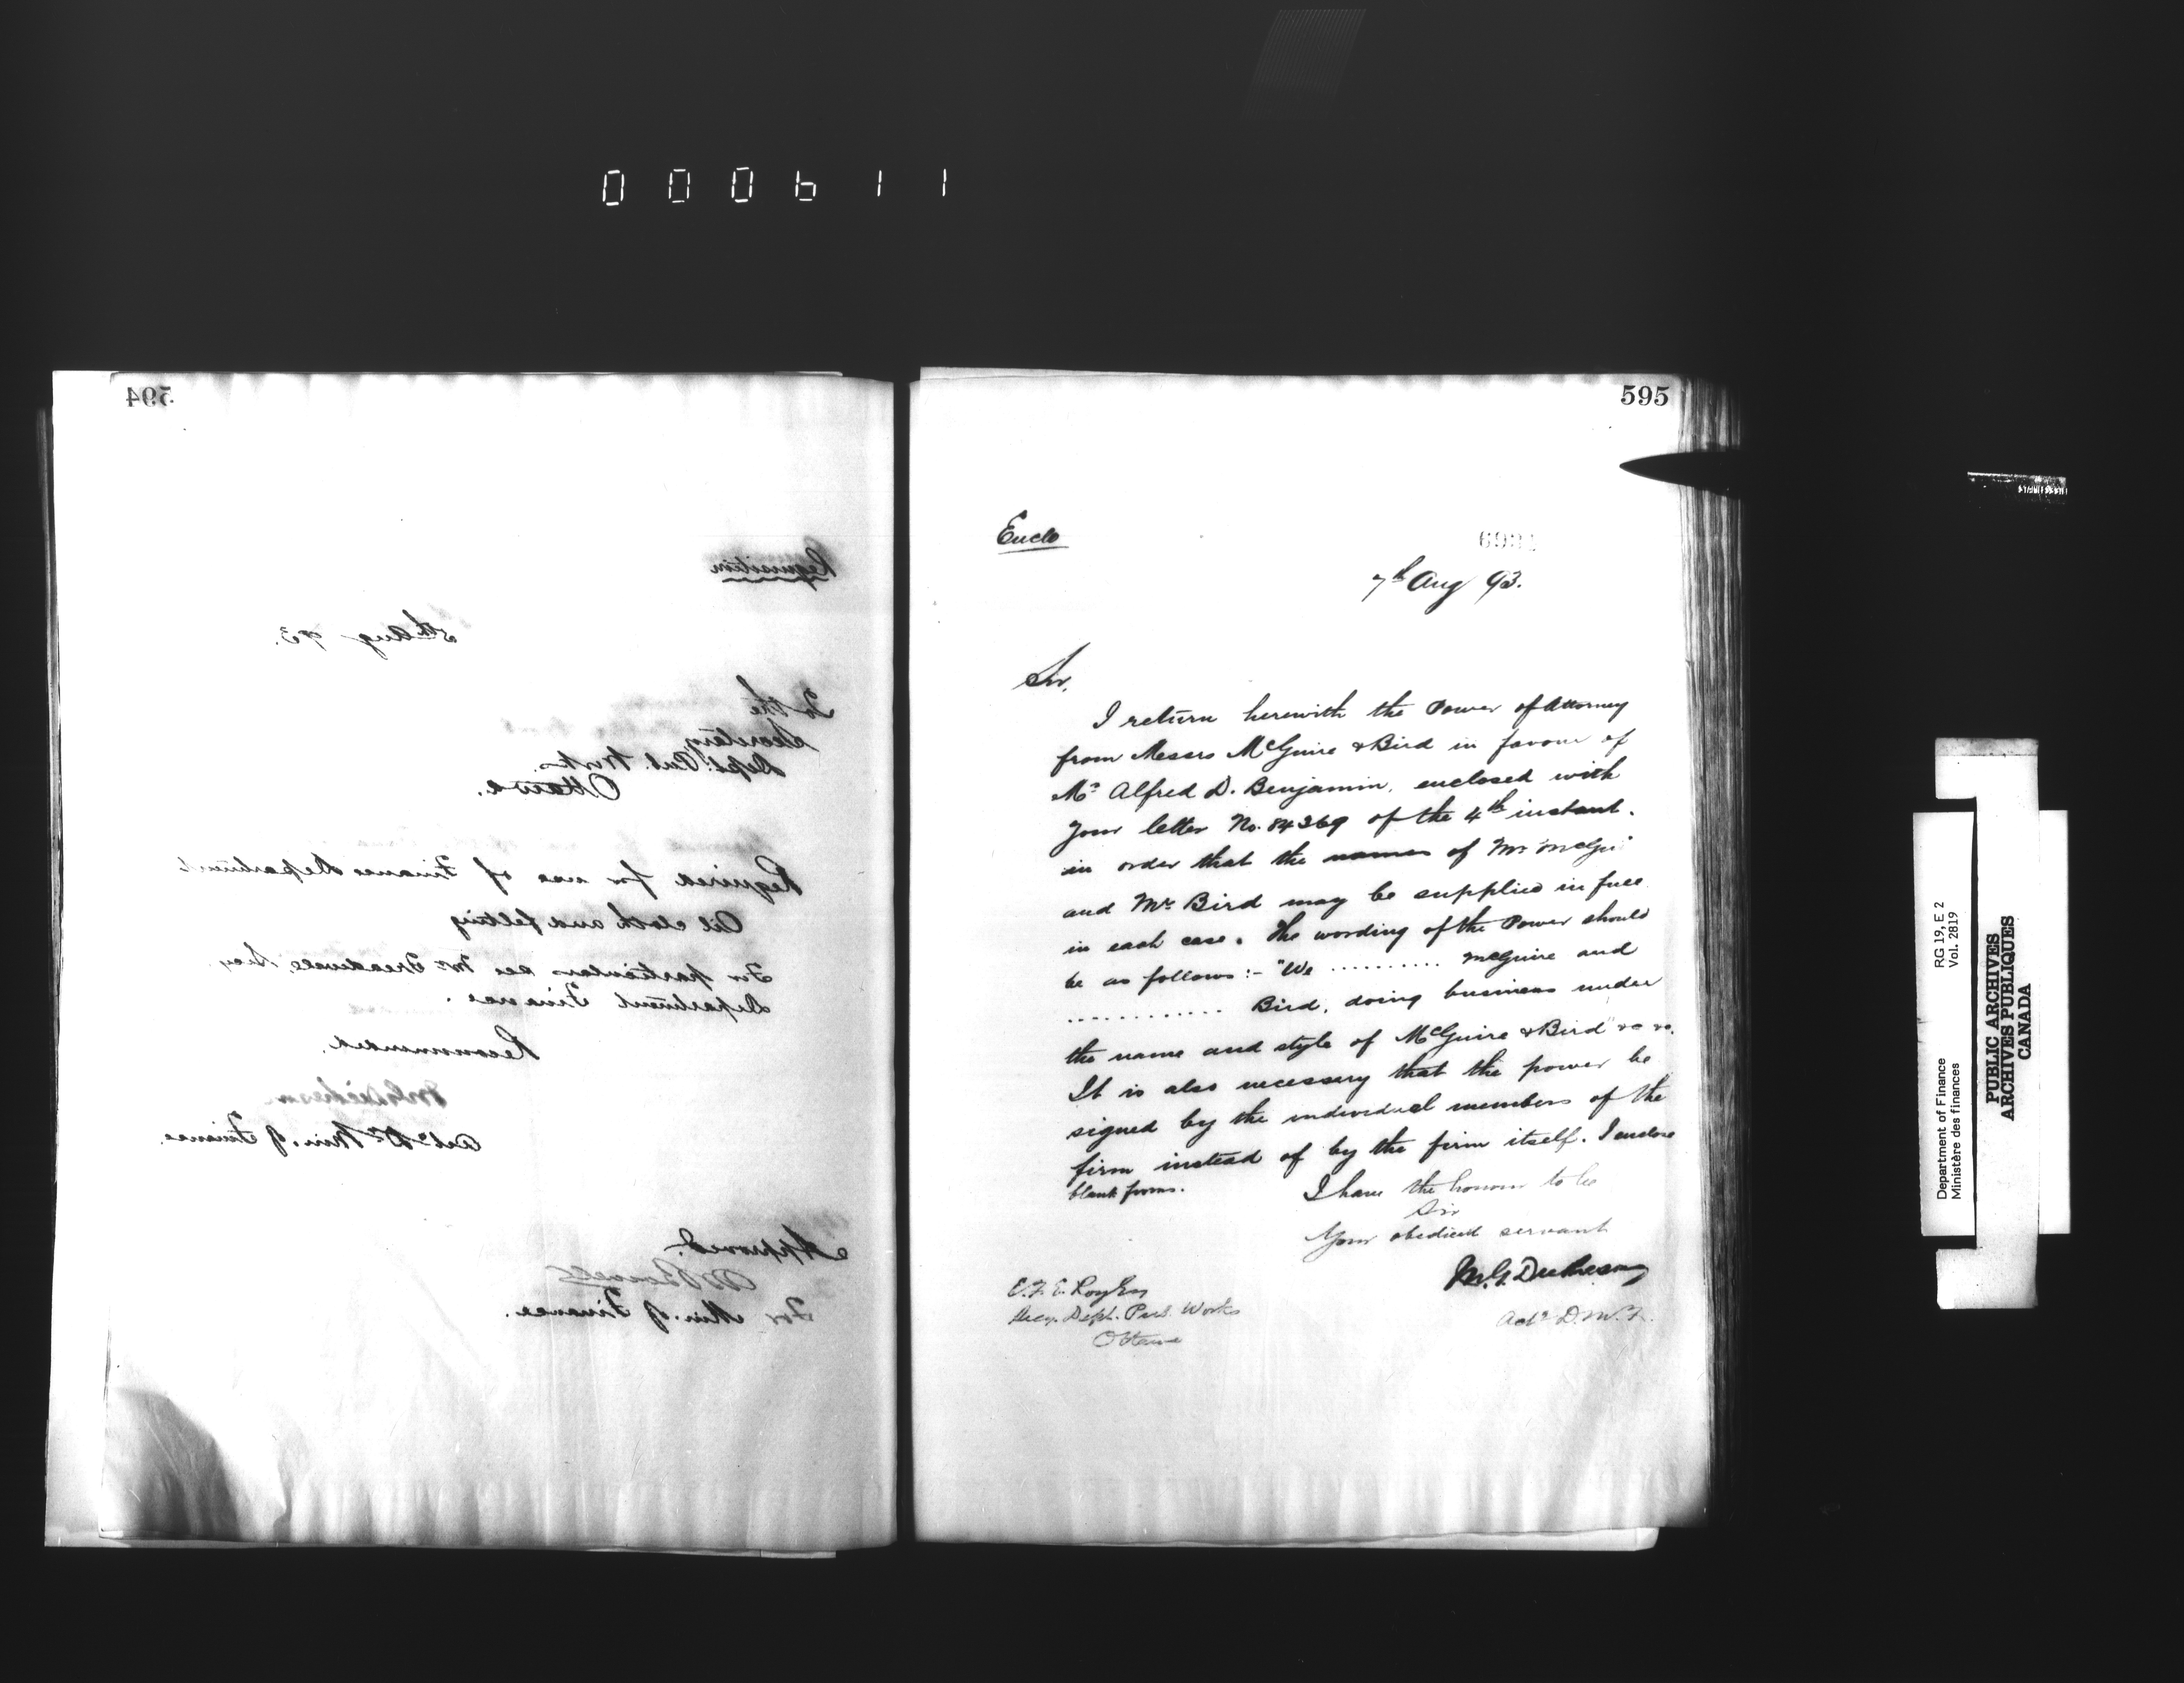 000611
594
Requisition
5th Aug 93.
To the
Secretary
Dept. Pub. Works.
Ottawa.
Required for use of Finance Department
Oil cloth and felting
For particulars see Mr Treadwell, Secy
Department Finance.
Recommended.
M.G. Dickieson
Actg Dy Min. of Finance.
Approved.
M Bowell
For Min. of Finance.
595
Enclo
7th Aug 93.
Sir,
I return herewith the Power of Attorney
from Messrs McGuire & Bird in favour of
Mr Alfred D. Benjamin, enclosed with
your letter No. 84369 of the 4th instant.
in order that the names of Mr McGui
and Mr Bird may be supplied in full
in each case. The wording of the Power should
be as follows:- "We .......... McGuire and
............ Bird, doing business under
the name and style of McGuire & Bird" &c &c.
It is also necessary that the power be
signed by the individual members of the
firm instead of by the firm itself. I enclose
blank forms.
I have the honour to be
Sir
Your obedient servant
M.G. Dickieson
Actg D.M.F.
E.F.E. Roy Esq
Secy. Dept. Pub. Works
Ottawa
Department of Finance
Ministère des finances
RG 19, E 2
Vol. 2819
PUBLIC ARCHIVES
ARCHIVES PUBLIQUES
CANADA